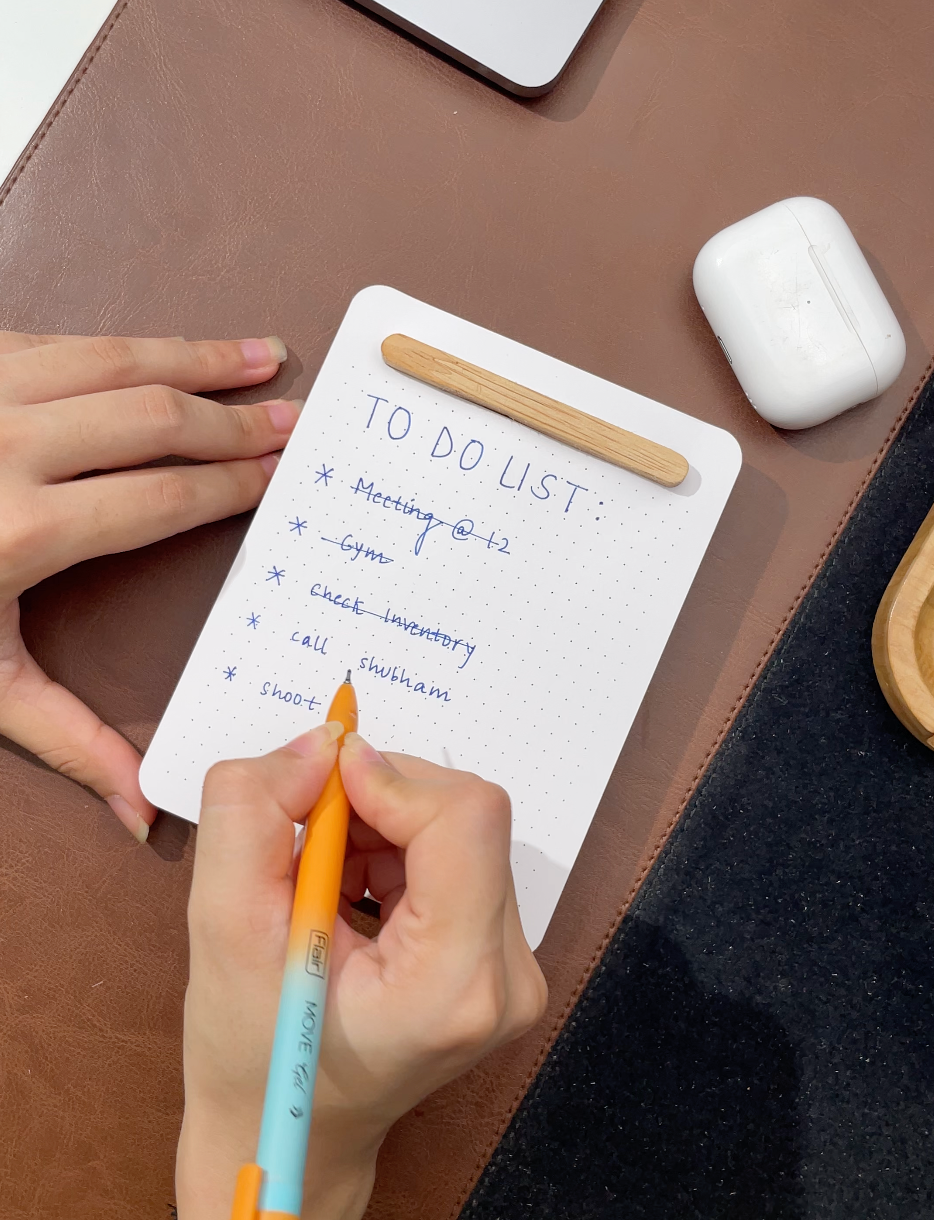 TO DO LIST:
* Meeting @ 12
* Gym
* Check Inventory
* call shubham
* shoot
Flair MOVE Gel